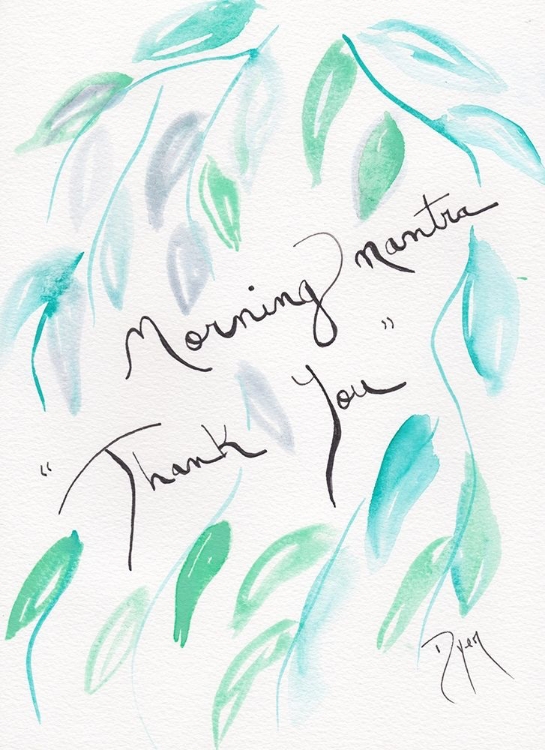 Morning mantra
"Thank You"
Dyer